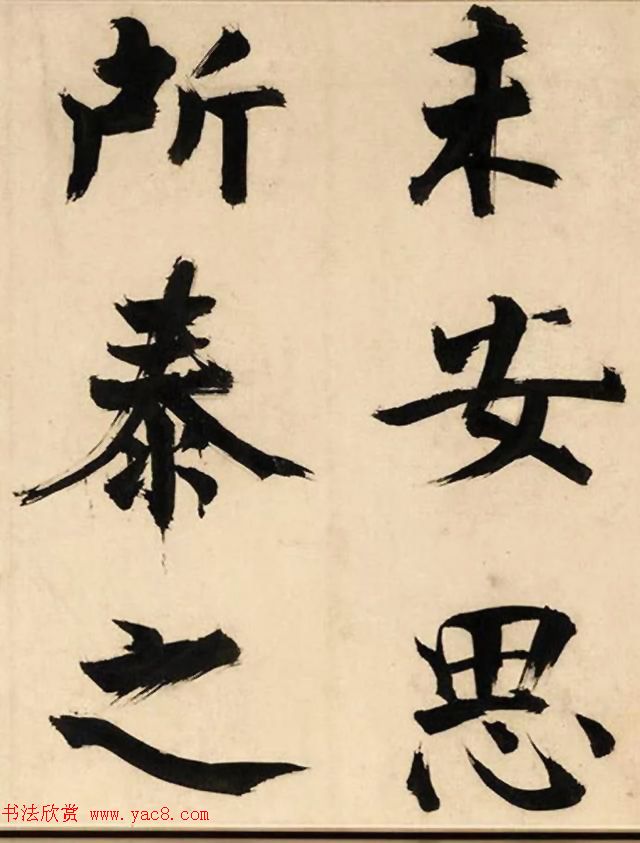 未安思
所泰之
书法欣赏 www.yac8.com